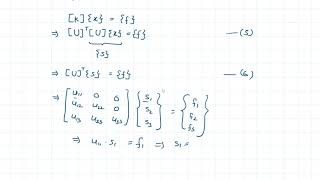 [K]{x} = {f}
⇒ [U]ᵀ[U]{x} = {f} —(5)
{s}
⇒ [U]ᵀ{s} = {f} —(6)
⇒ [u₁₁ 0 0; u₁₂ u₂₂ 0; u₁₃ u₂₃ u₃₃] {s₁; s₂; s₃} = {f₁; f₂; f₃}
⇒ u₁₁·s₁ = f₁ ⇒ s₁ =